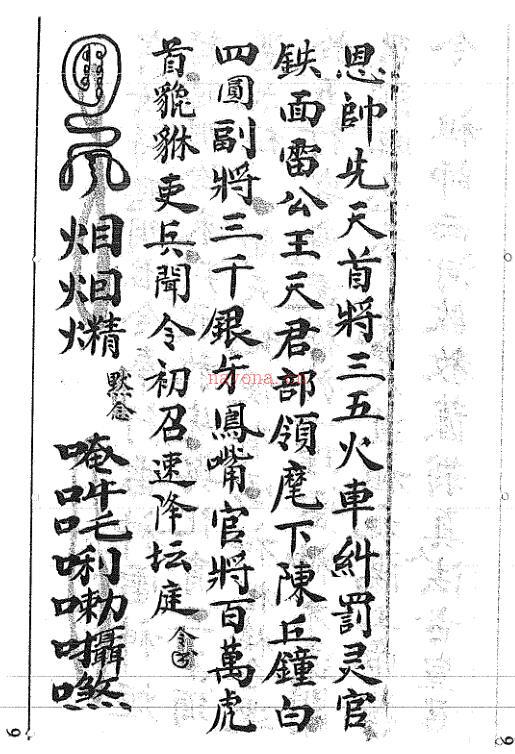 恩帥先天首將三五火車糾罰灵官
鉄面雷公王天君部領麾下陳丘鐘白
四圓副將三千銀牙鳳嘴官將百萬虎
首貔貅吏兵聞令初召速降坛庭
默念
唵吽吒唎嘞囁
nayona.cn
9
9